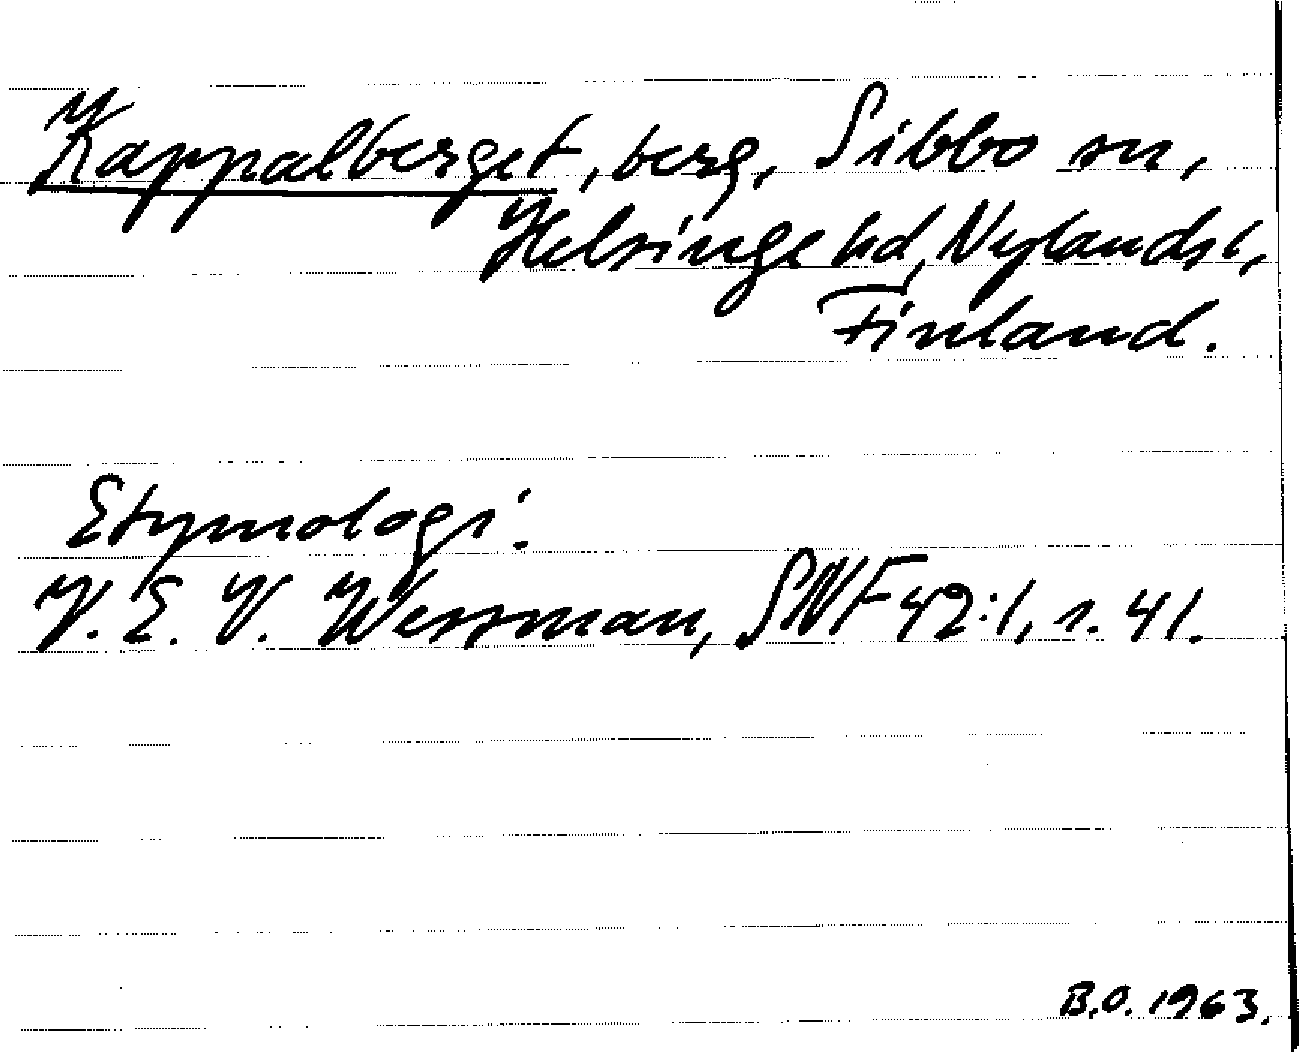 Kappalberget, berg, Sibbo sn,
Helsinge hd, Nylands l,
Finland.
Etymologi:
V. E. V. Wessman, SNF 42:1, s. 41.
B.O. 1963.